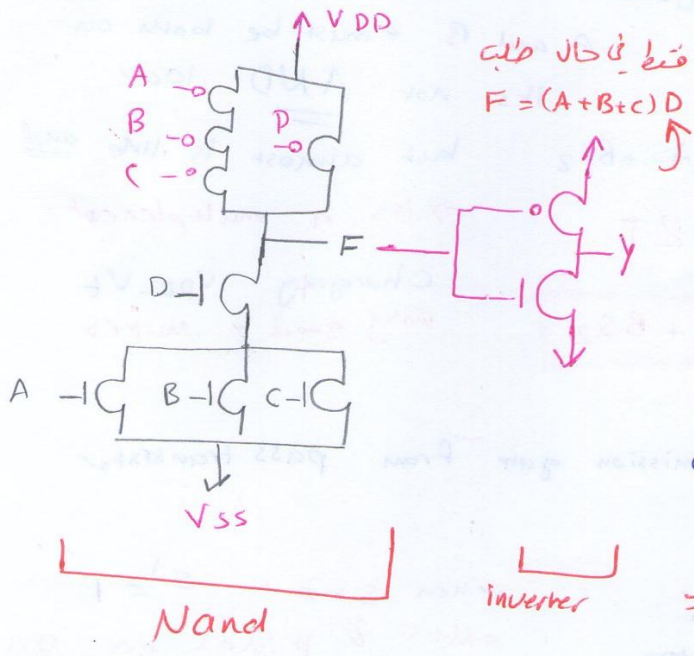 V DD
فقط في حال طلب
F = (A+B+C) D
A
B
C
D
F
Y
D
A
B
C
VSS
Nand
inverter
=